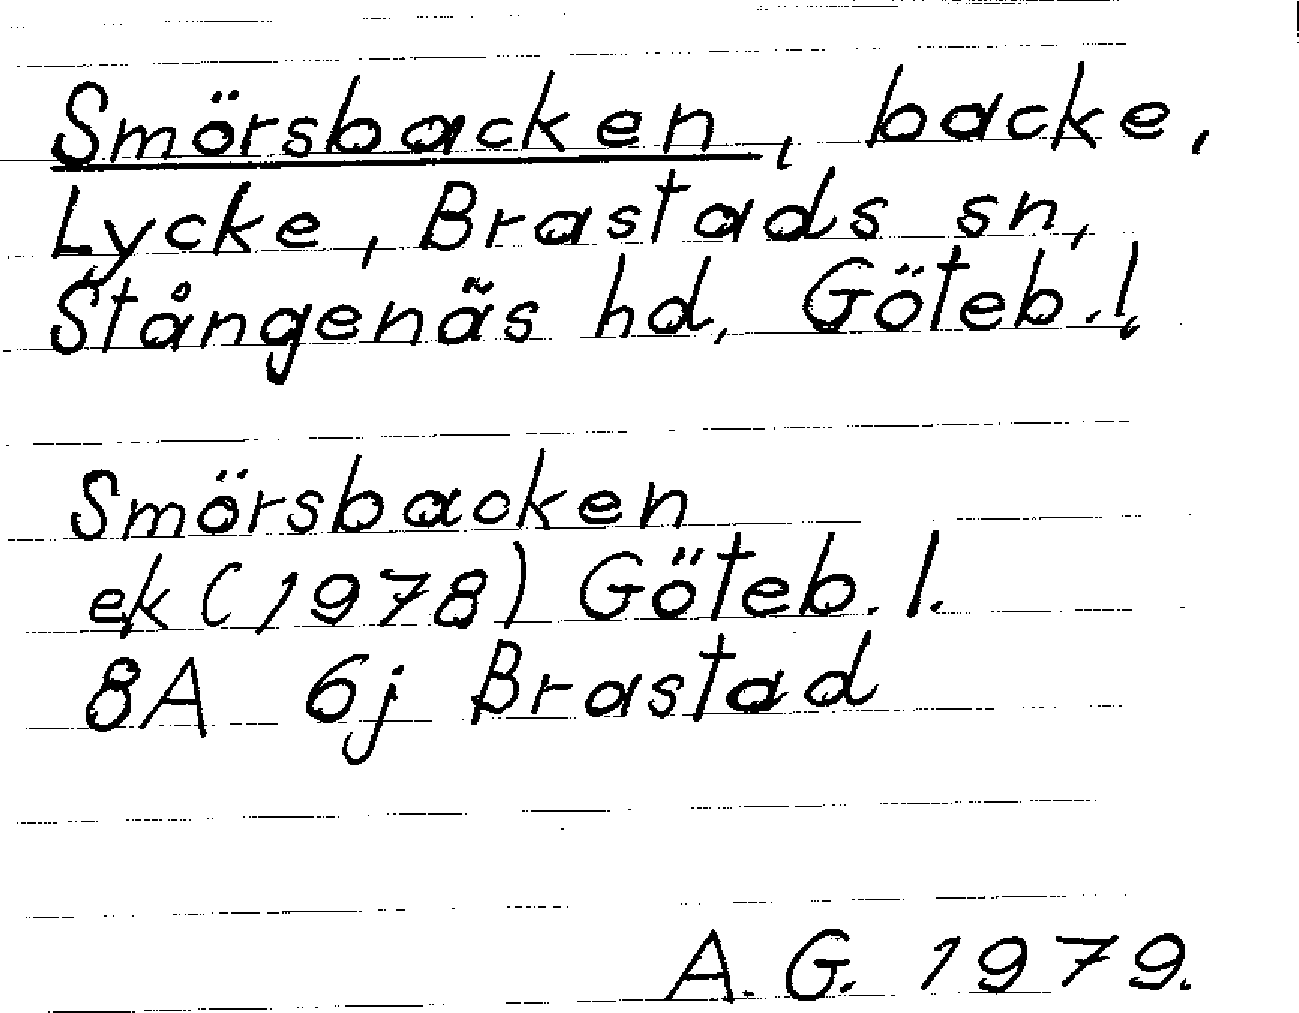 Smörsbacken, backe,
Lycke, Brastads sn,
Stångenäs hd, Göteb. l.
Smörsbacken
ek (1978) Göteb. l.
8A 6j Brastad
A. G. 1979.